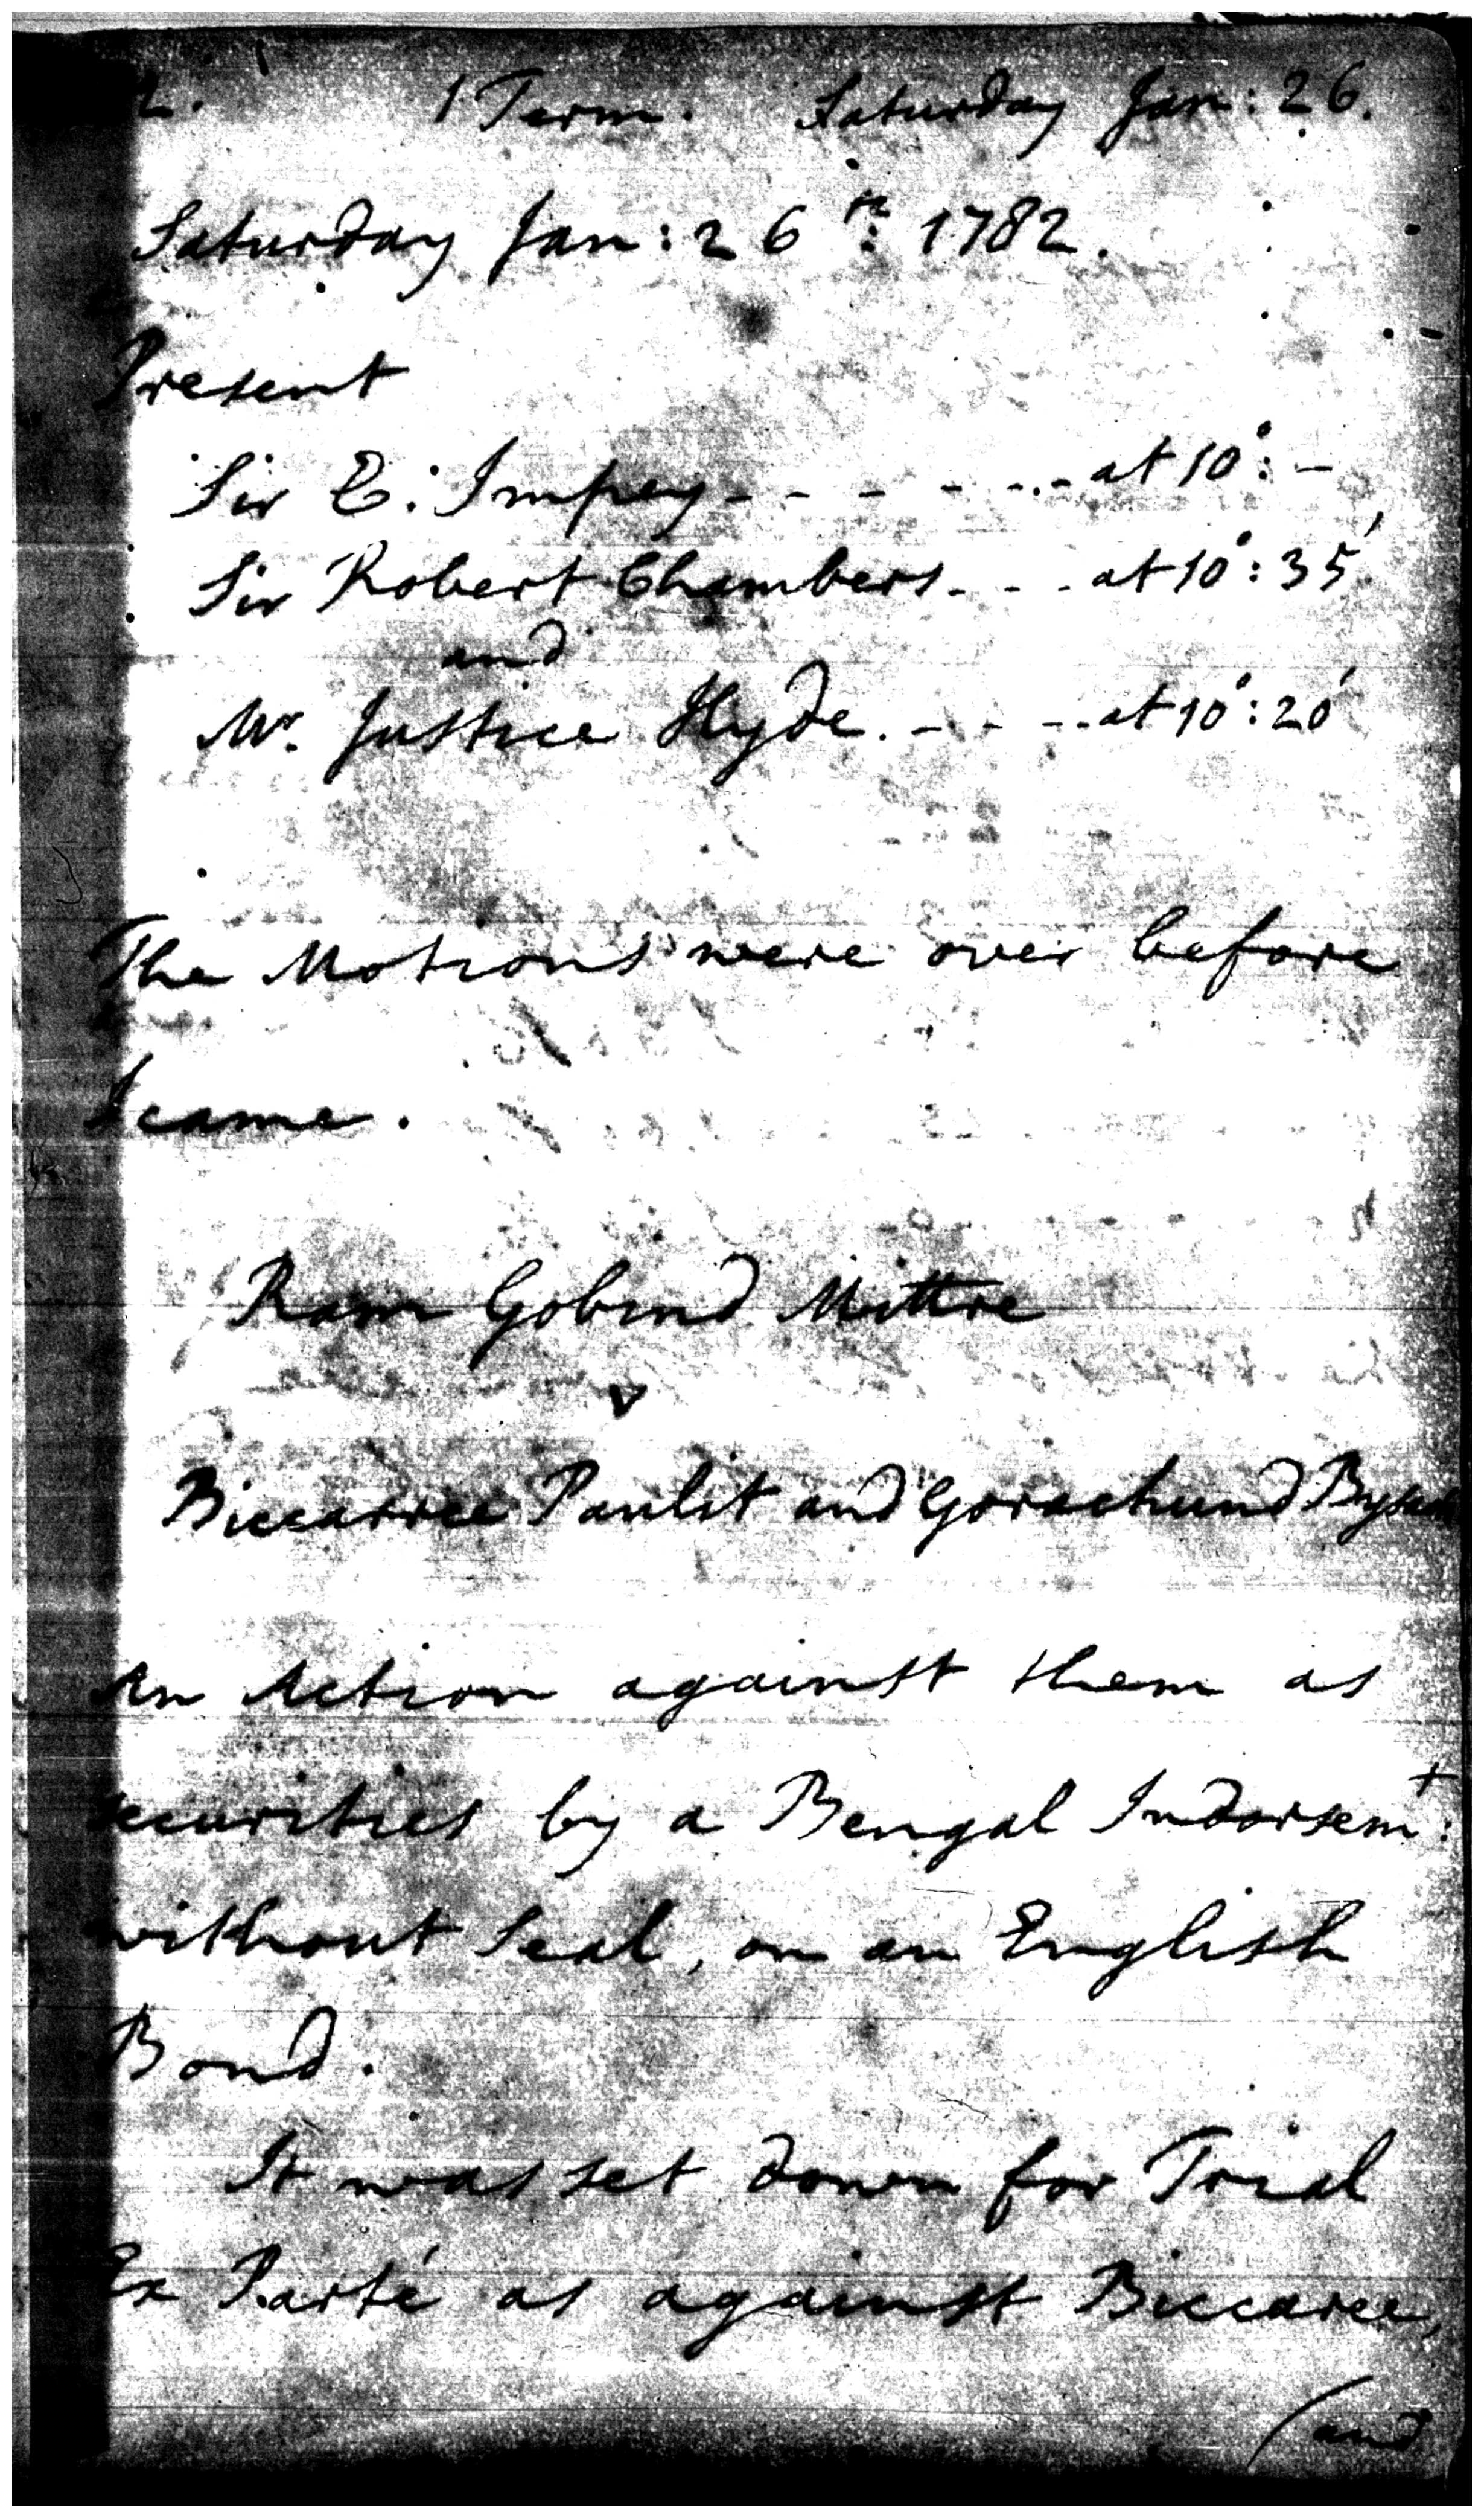 2. 1 Term. Saturday Jan: 26.
Saturday Jan: 26th: 1782.
Present
Sir E: Impey - - - - - - at 10°: -
Sir Robert Chambers - - - at 10°: 35'
and
Mr. Justice Hyde. - - - - at 10°: 20'
The Motions were over before
I came.
Ram Gobind Mittre
v
Biccarree Paulit and Gorachund Bysack
An Action against them as
securities by a Bengal Indorsemt:
without Seal, on an English
Bond.
It was set down for Trial
Ex Parté as against Biccaree,
(and